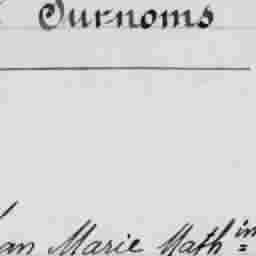 Surnoms
an Marie Math in